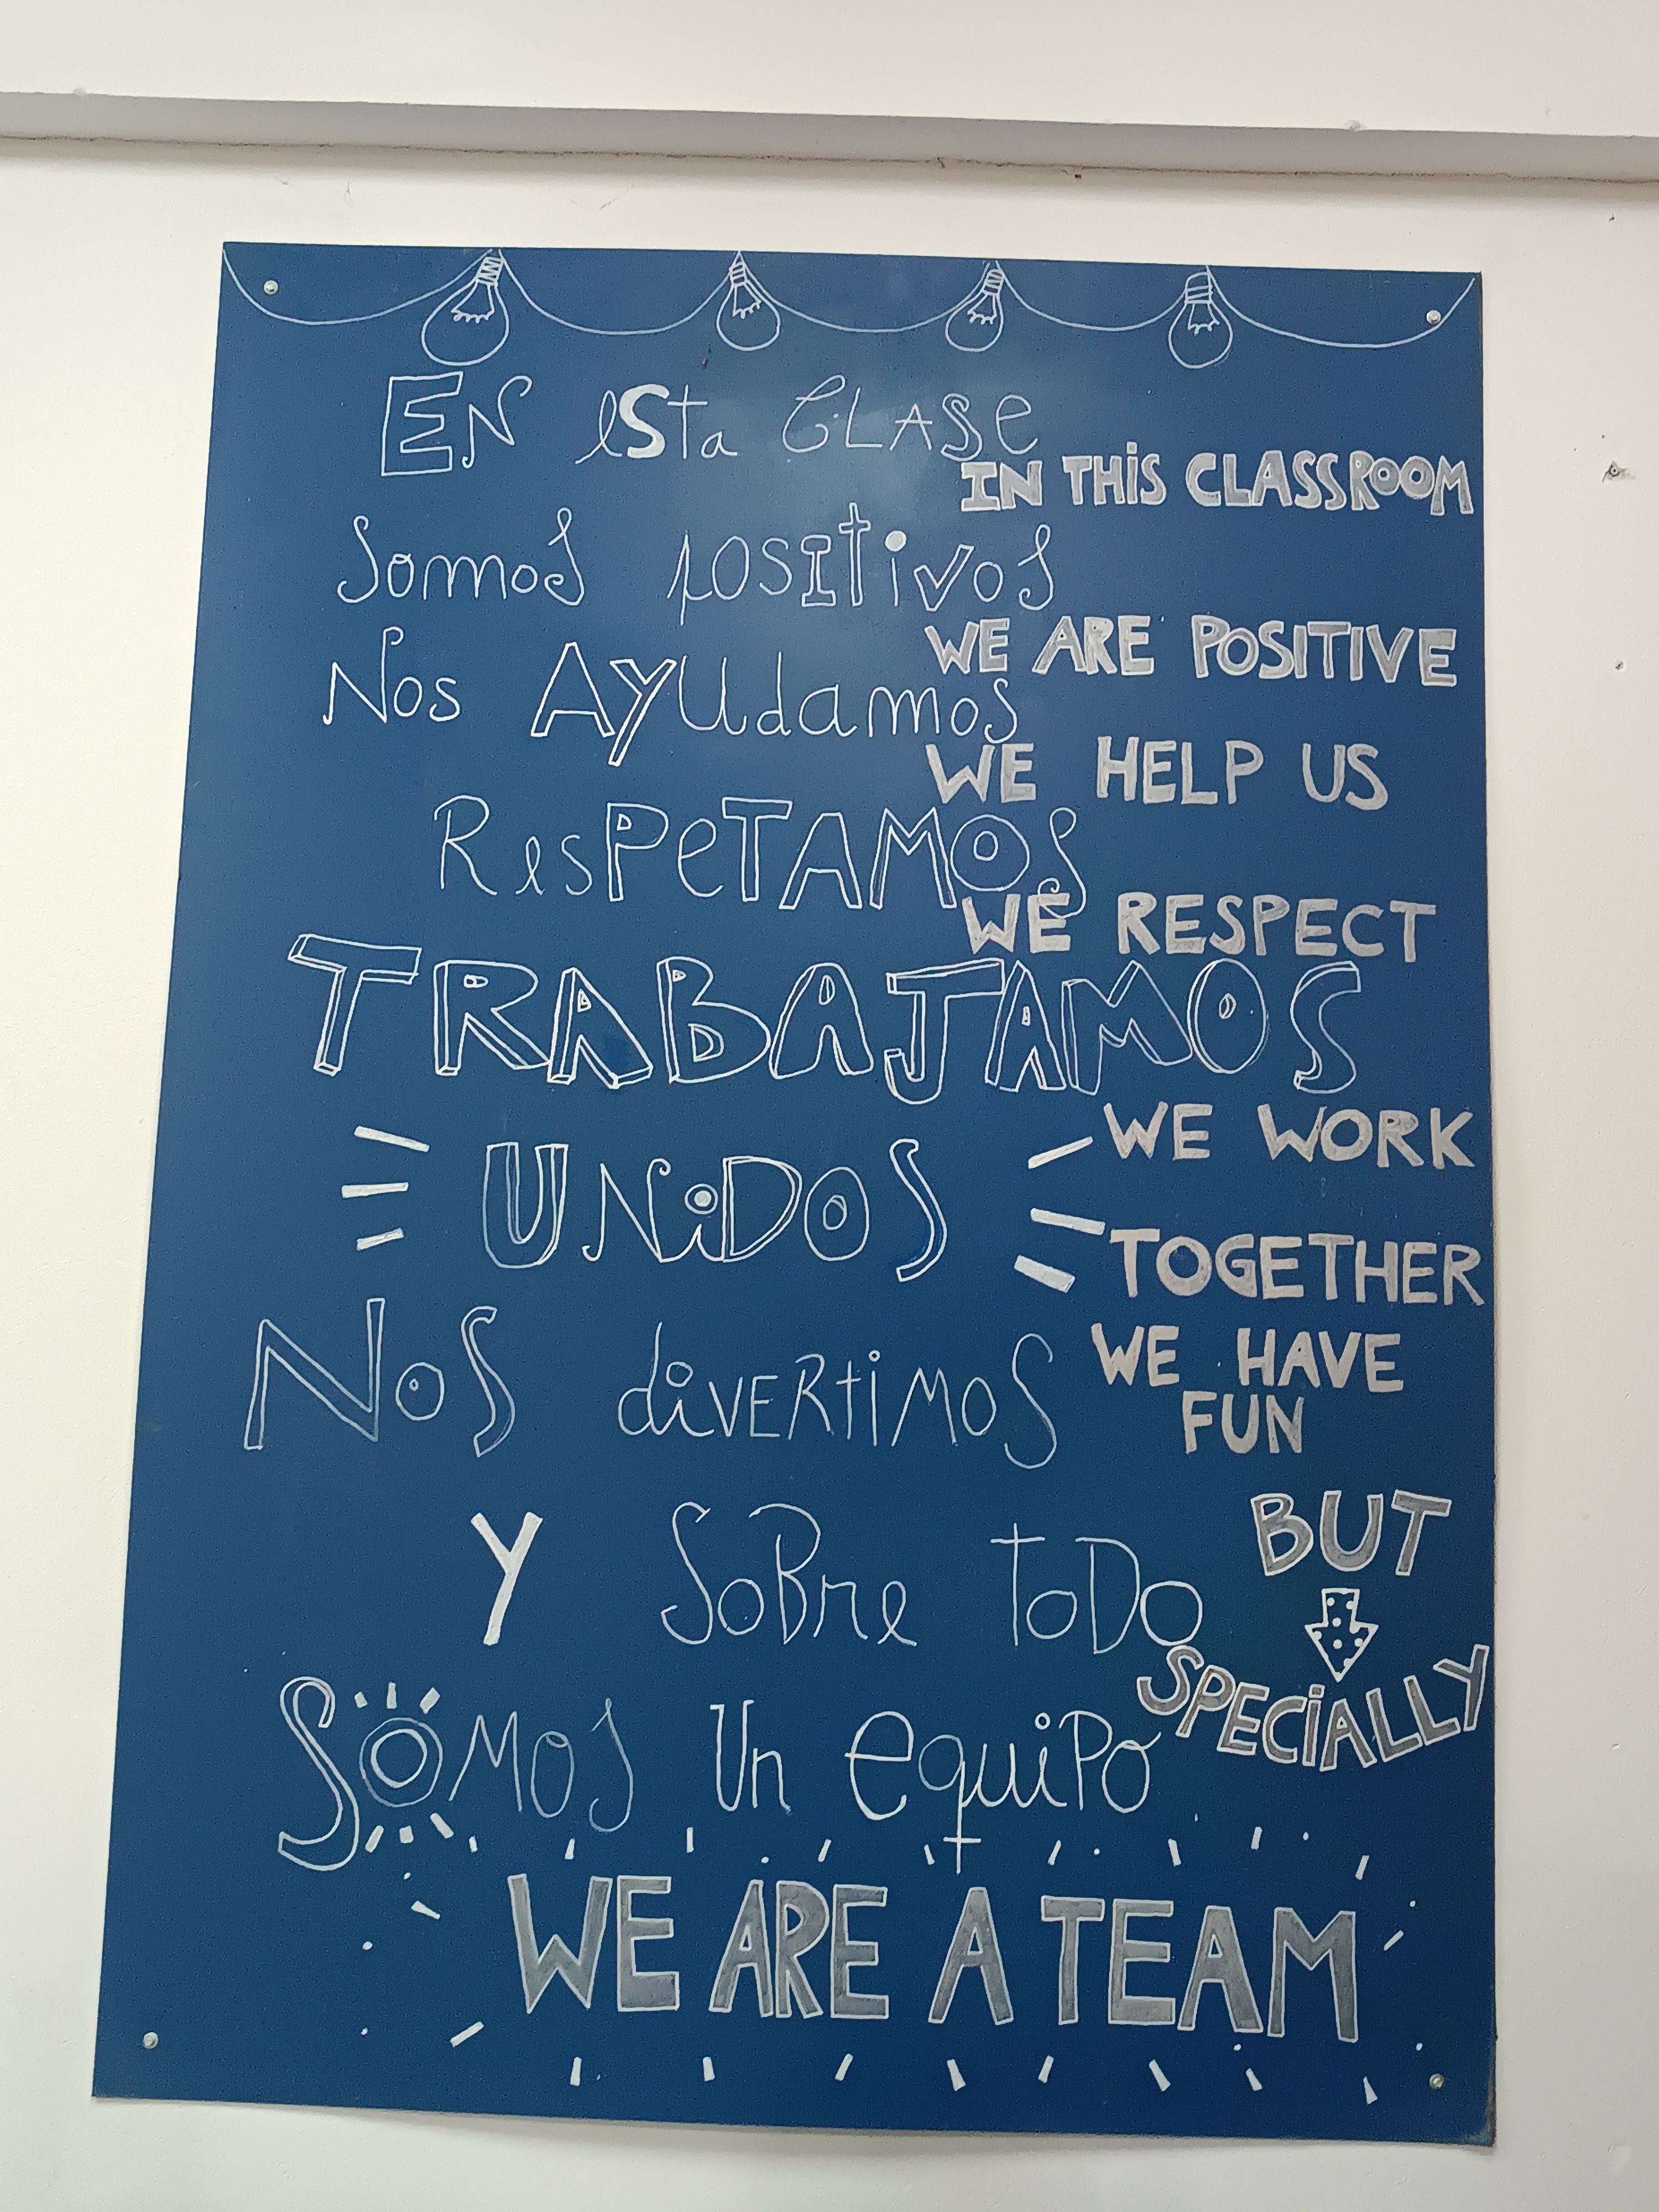 EN esta CLASE
IN THIS CLASSROOM
Somos positivos
WE ARE POSITIVE
Nos AyUdamos
WE HELP US
ResPeTAMOS
WE RESPECT
TRABAJAMOS
WE WORK
UNiDOS
TOGETHER
NoS diVERtiMOS
WE HAVE
FUN
BUT
Y SoBre toDo
SPECiALLY
SOMOS Un equiPo
WE ARE A TEAM